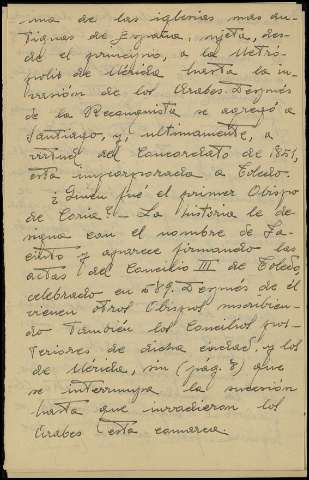 una de las iglesias más an-
tiguas de España, sujeta, des-
de el principio, a la Metró-
poli de Mérida hasta la in-
vasión de los Arabes. Después
de la Reconquista se agregó a
Santiago, y, ultimamente, a
virtud del Concordato de 1851,
está incorporada a Toledo.
¿Quién fué el primer Obispo
de Coria? — La historia le de-
signa con el nombre de Ja-
cinto y aparece firmando las
actas del Concilio III de Toledo,
celebrado en 589. Después de él
vienen otros Obispos suscribien-
do también los Concilios pos-
teriores de dicha ciudad, y los
de Mérida, sin (pag. 8) que
se interrumpa la sucesión
hasta que invadieron los
Arabes esta comarca.